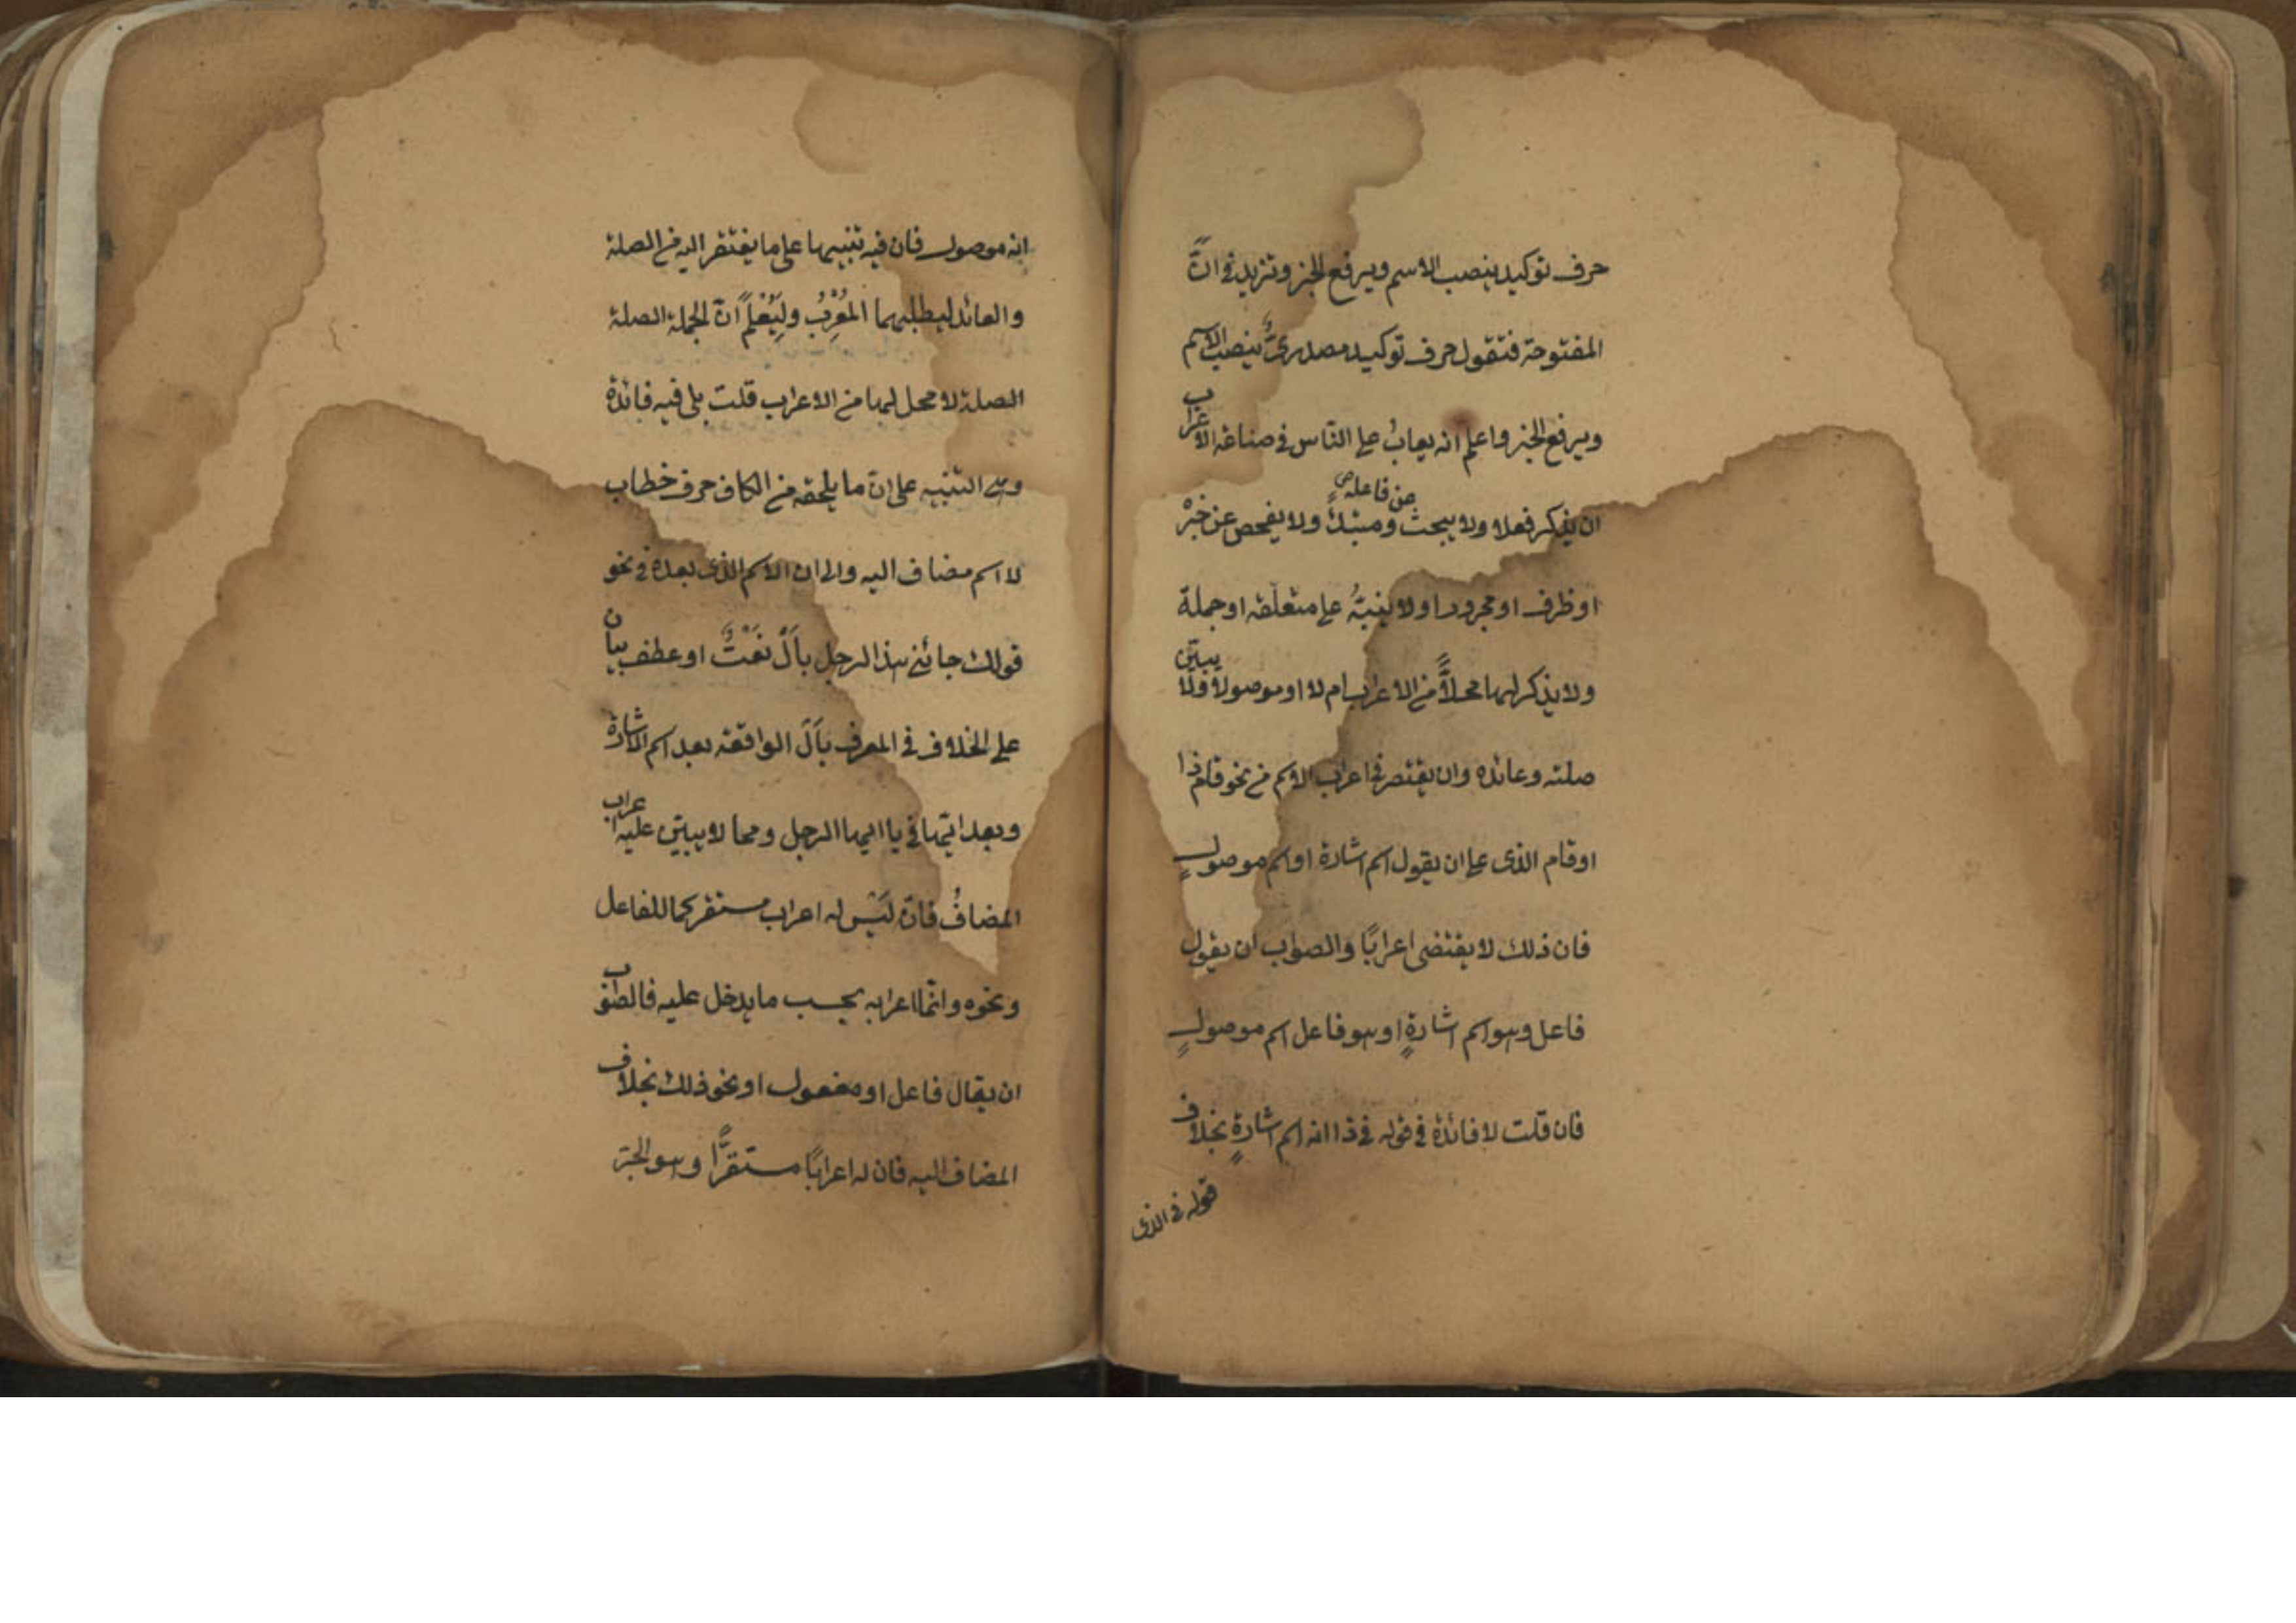 حرف توكيد ينصب الاسم ويرفع الخبر وتزيد في انَّ
المفتوحة فتقول حرف توكيد مصدريٌّ ينصب الاسم
ويرفع الخبر واعلم انه يعابُ على النّاس في صناعة الاعراب
ان يذكر فعلا ولا يبحث عن فاعله ومبتدأ ولا يفحص عن خبره
او ظرف او مجرورا ولا ينبّهُ على متعلّقه او جملة
ولا يذكر لها محلاًّ من الاعراب ام لا او موصولا ولا يبيّن
صلته وعائده وان يقتصر في اعراب الاسم من نحو قام ذا
او قام الذى على ان يقول اسم اشارة او اسم موصولٍ
فان ذلك لا يقتضى اعرابًا والصواب ان يقول
فاعل وهو اسم اشارةٍ او هو فاعل اسم موصولٍ
فان قلت لا فائدة في قوله في ذا انه اسم اشارةٍ بخلاف
قوله في الذى
انه موصول فان فيه تنبيها على ما يفتقر اليه من الصلة
والعائد ليطلبهما المُعْرِبُ ولِيُعْلَمَ انّ الجملة الصلة
الصلة لا محل لها من الاعراب قلت بلى فيه فائدة
وهى التنبيه على انّ ما يلحقه من الكاف حرف خطاب
لا اسم مضاف اليه والى ان الاسم الذى بعده في نحو
قولك جائنى هذا الرجل بأَلْ نَعْتٌ او عطف بيان
على الخلاف في المعرف بأَلْ الواقعة بعد اسم الاشارة
وبعد ايّها في يا ايها الرجل ومما لا يبيّن عليه اعراب
المضافُ فانّ لَيْسَ له اعراب مستقر كما للفاعل
ونحوه وانّما اعرابه بحسب ما يدخل عليه فالصّواب
ان يقال فاعل او مفعول او نحو ذلك بخلاف
المضاف اليه فان له اعرابًا مستقرًّا وهو الجرّ